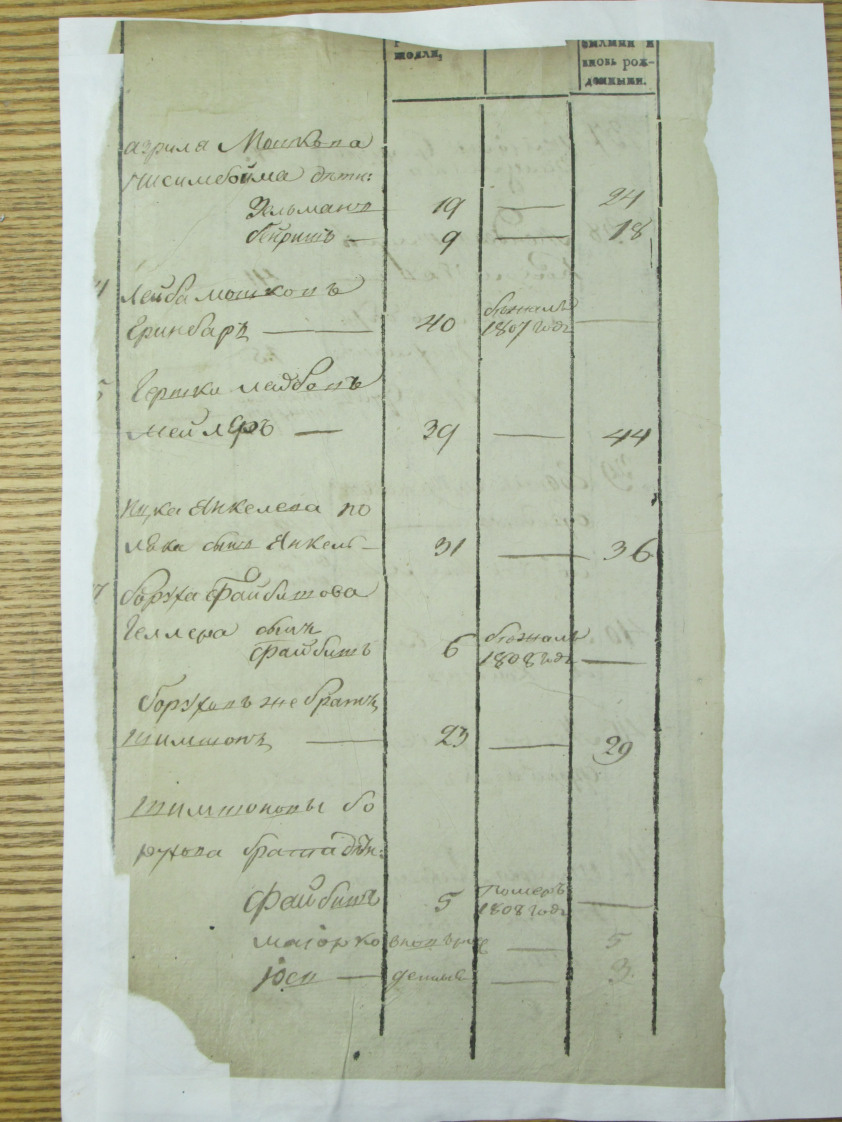 шедли,
былыми и
вновь рож-
денными.
Азрила Мошкова
дѣти:
Зельманъ 19 — 24
беришъ — 9 — 18
Лейба мошковъ
Гринбаръ — 40 бѣжалъ
1807 году —
Гершко лейбовъ
мейлеръ — 39 — 44
Ицка Янкелева по
сынъ Янкель — 31 — 36
боруха Файбишова
Геллера сынъ
Файбишъ 6 бѣжалъ
1808 году —
борухавъ же братъ
Шимшонъ — 23 — 29
Шимшоновы бо
рухова брата дѣти:
Файбишъ 5 Померъ
1808 году —
маіорко вновьрож — 5
Юсп — денные — 3